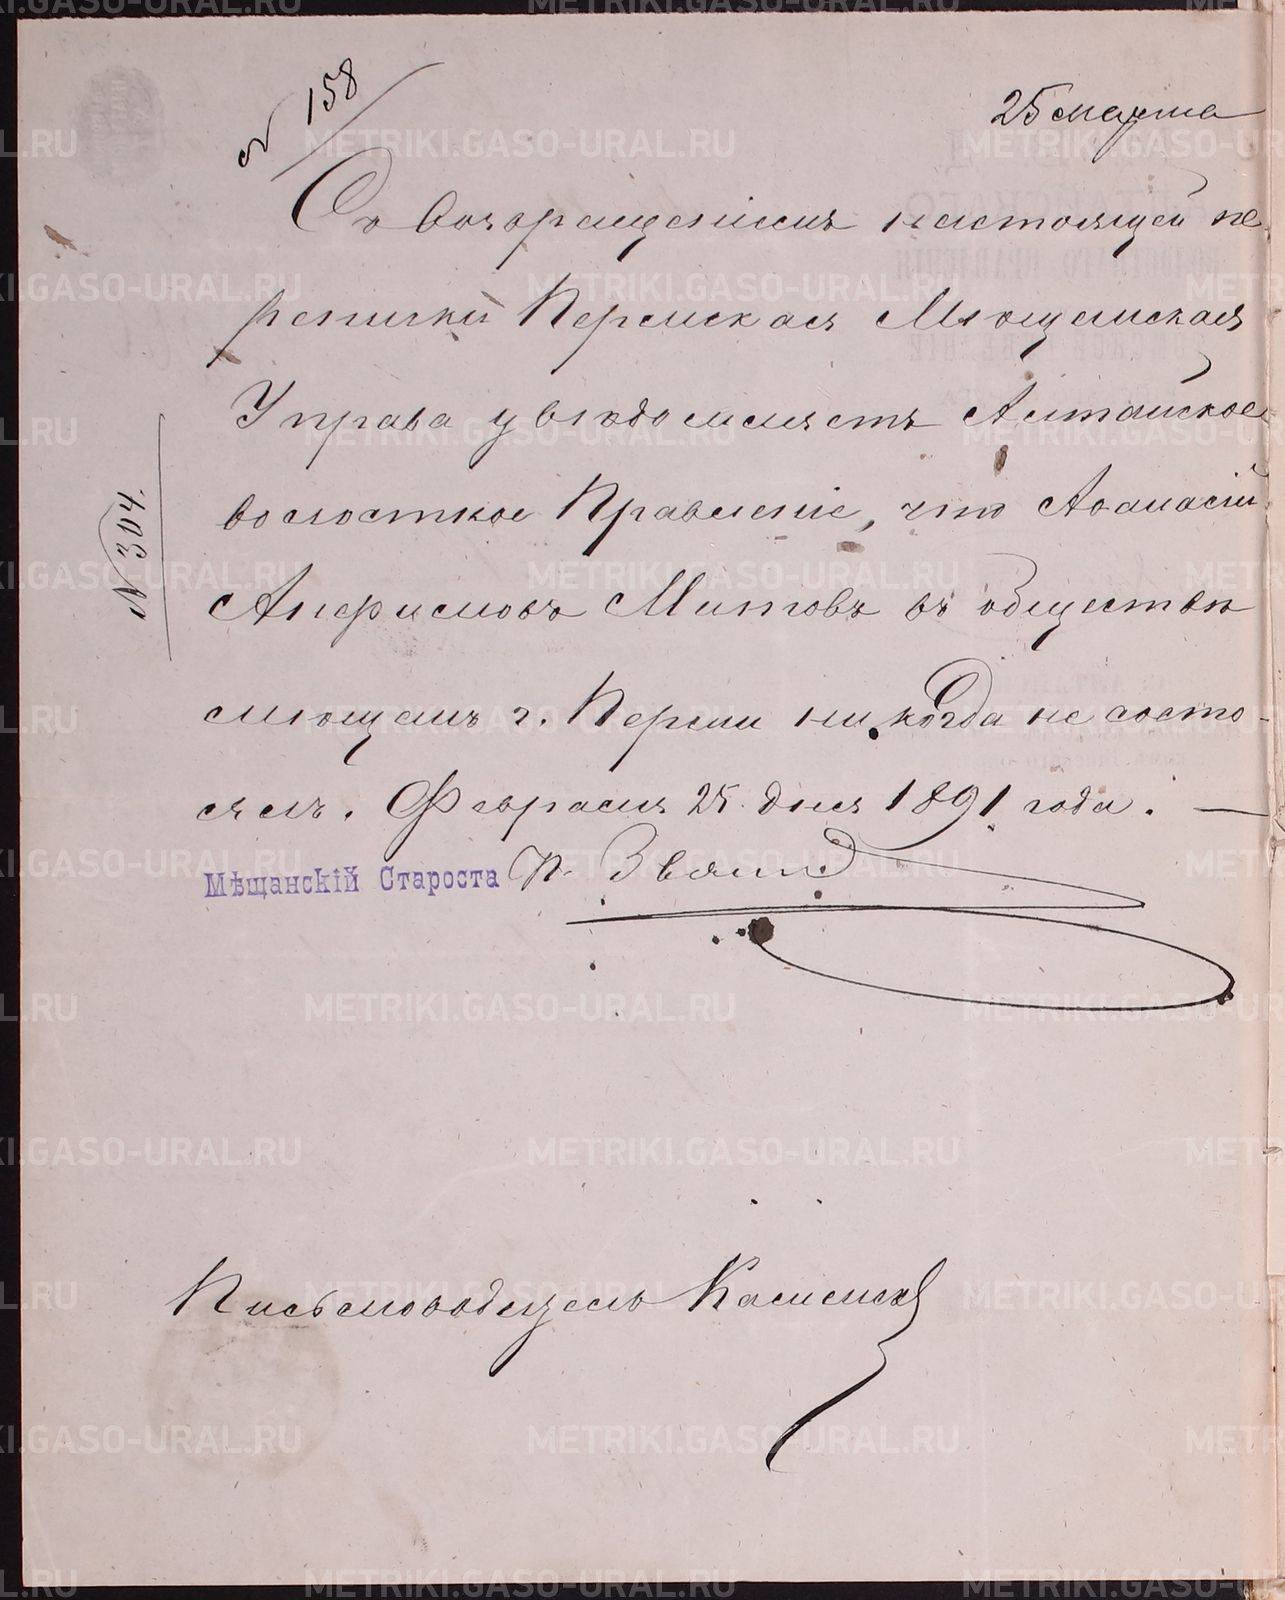 № 158
25 марта
Съ возвращеніемъ настоящей пе
реписки Пермская Мѣщанская
Управа увѣдомляетъ Алтайское
волостное Правленіе, что Аѳанасій
Анфимовъ Митовъ въ обществѣ
мѣщанъ г. Перми никогда не состо-
ялъ. Февраля 25 дня 1891 года. —
№ 304.
Мѣщанскій Староста
Письмоводитель
METRIKI.GASO-URAL.RU